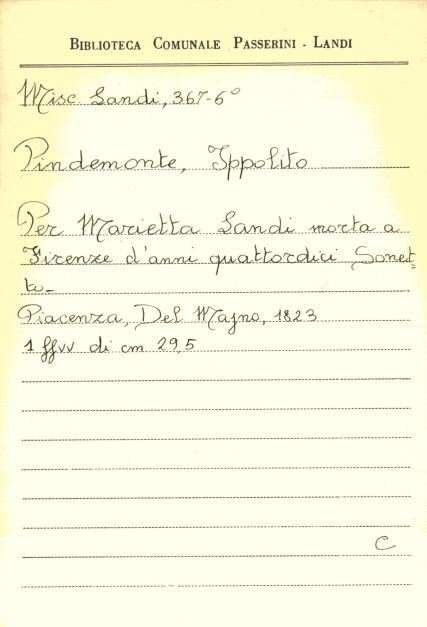 BIBLIOTECA COMUNALE PASSERINI - LANDI
Misc. Landi, 367-6°
Pindemonte, Ippolito
Per Marietta Landi morta a
Firenze d'anni quattordici Sonet=
to-
Piacenza, Del Majno, 1823
1 ffvv di cm 29,5
C